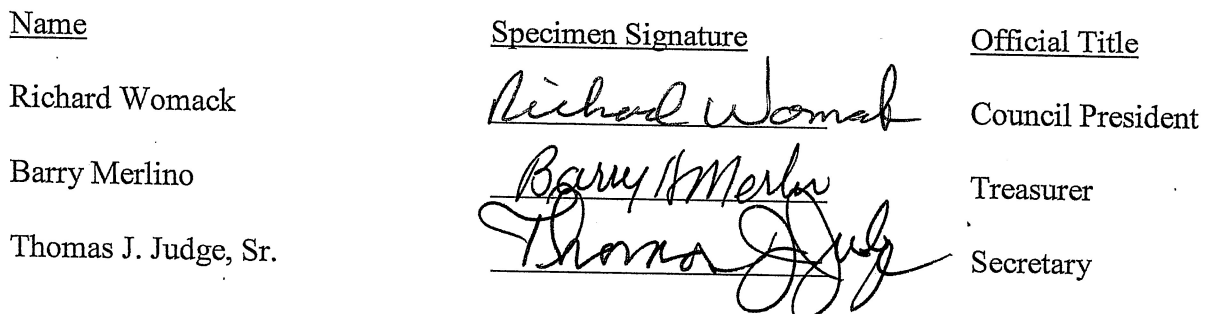 Name Specimen Signature Official Title
Richard Womack Richard Womack Council President
Barry Merlino Barry A Merlino Treasurer
Thomas J. Judge, Sr. Thomas J Judge Secretary